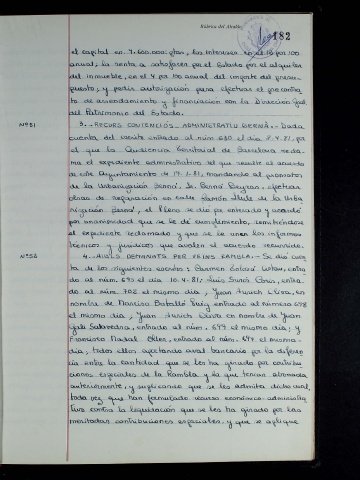 Rúbrica del Alcalde,
182
el capital en 7.600.000 ptas, los intereses en el 13 por 100
anual; la renta a satisfacer por el Estado por el alquiler
del inmueble, en el 4 por 100 anual del importe del presu-
puesto; y pedir autorización para efectuar el precontra-
to de arrendamiento y financiación con la Dirección Gral
del Patrimonio del Estado.
Nº 51
3.- RECURS CONTENCIÓS ADMINISTRATIU SERNÀ.- Dada
cuenta del escrito entrado al núm 680 el día 8.4.81, por
el que la Audiencia Territorial de Barcelona recla-
ma el expediente administrativo del que resultó el acuerdo
de este Ayuntamiento de 19.1.81, mandando al promotor
de la Urbanización
efectuar
obras de reparación en calle Ramón Llull de la Urba-
nización
el Pleno se dio por enterado y acordó
por unanimidad que se le dé cumplimiento, remitiéndose
el expediente reclamado y que se le unan los informes
técnicos y jurídicos que avalen el acuerdo recurrido.
Nº 52
4.- AVALS DEMANATS PER VEÏNS RAMBLA.- Se dio cuen-
ta de los siguientes escritos: Carmen
entra-
do al núm 695 el día 10.4.81; Luis
entra-
do al núm. 702 el mismo día; Juan
en
nombre de Narciso Batallé Puig entrado al número 698
el mismo día; Juan
en nombre de Juan
entrado al núm. 699 el mismo día; y
Francisco Nadal
entrado al núm. 697 el mismo
día; todos ellos aportando aval bancario por la diferen-
cia entre la cantidad que se les ha girado por contribu-
ciones especiales de la Rambla y la que tenían abonada
anteriormente, y suplicando que se les admita dicho aval,
toda vez que han formulado recurso económico-administra-
tivo contra la liquidación que se les ha girado por las
meritadas contribuciones especiales; y que se aplique